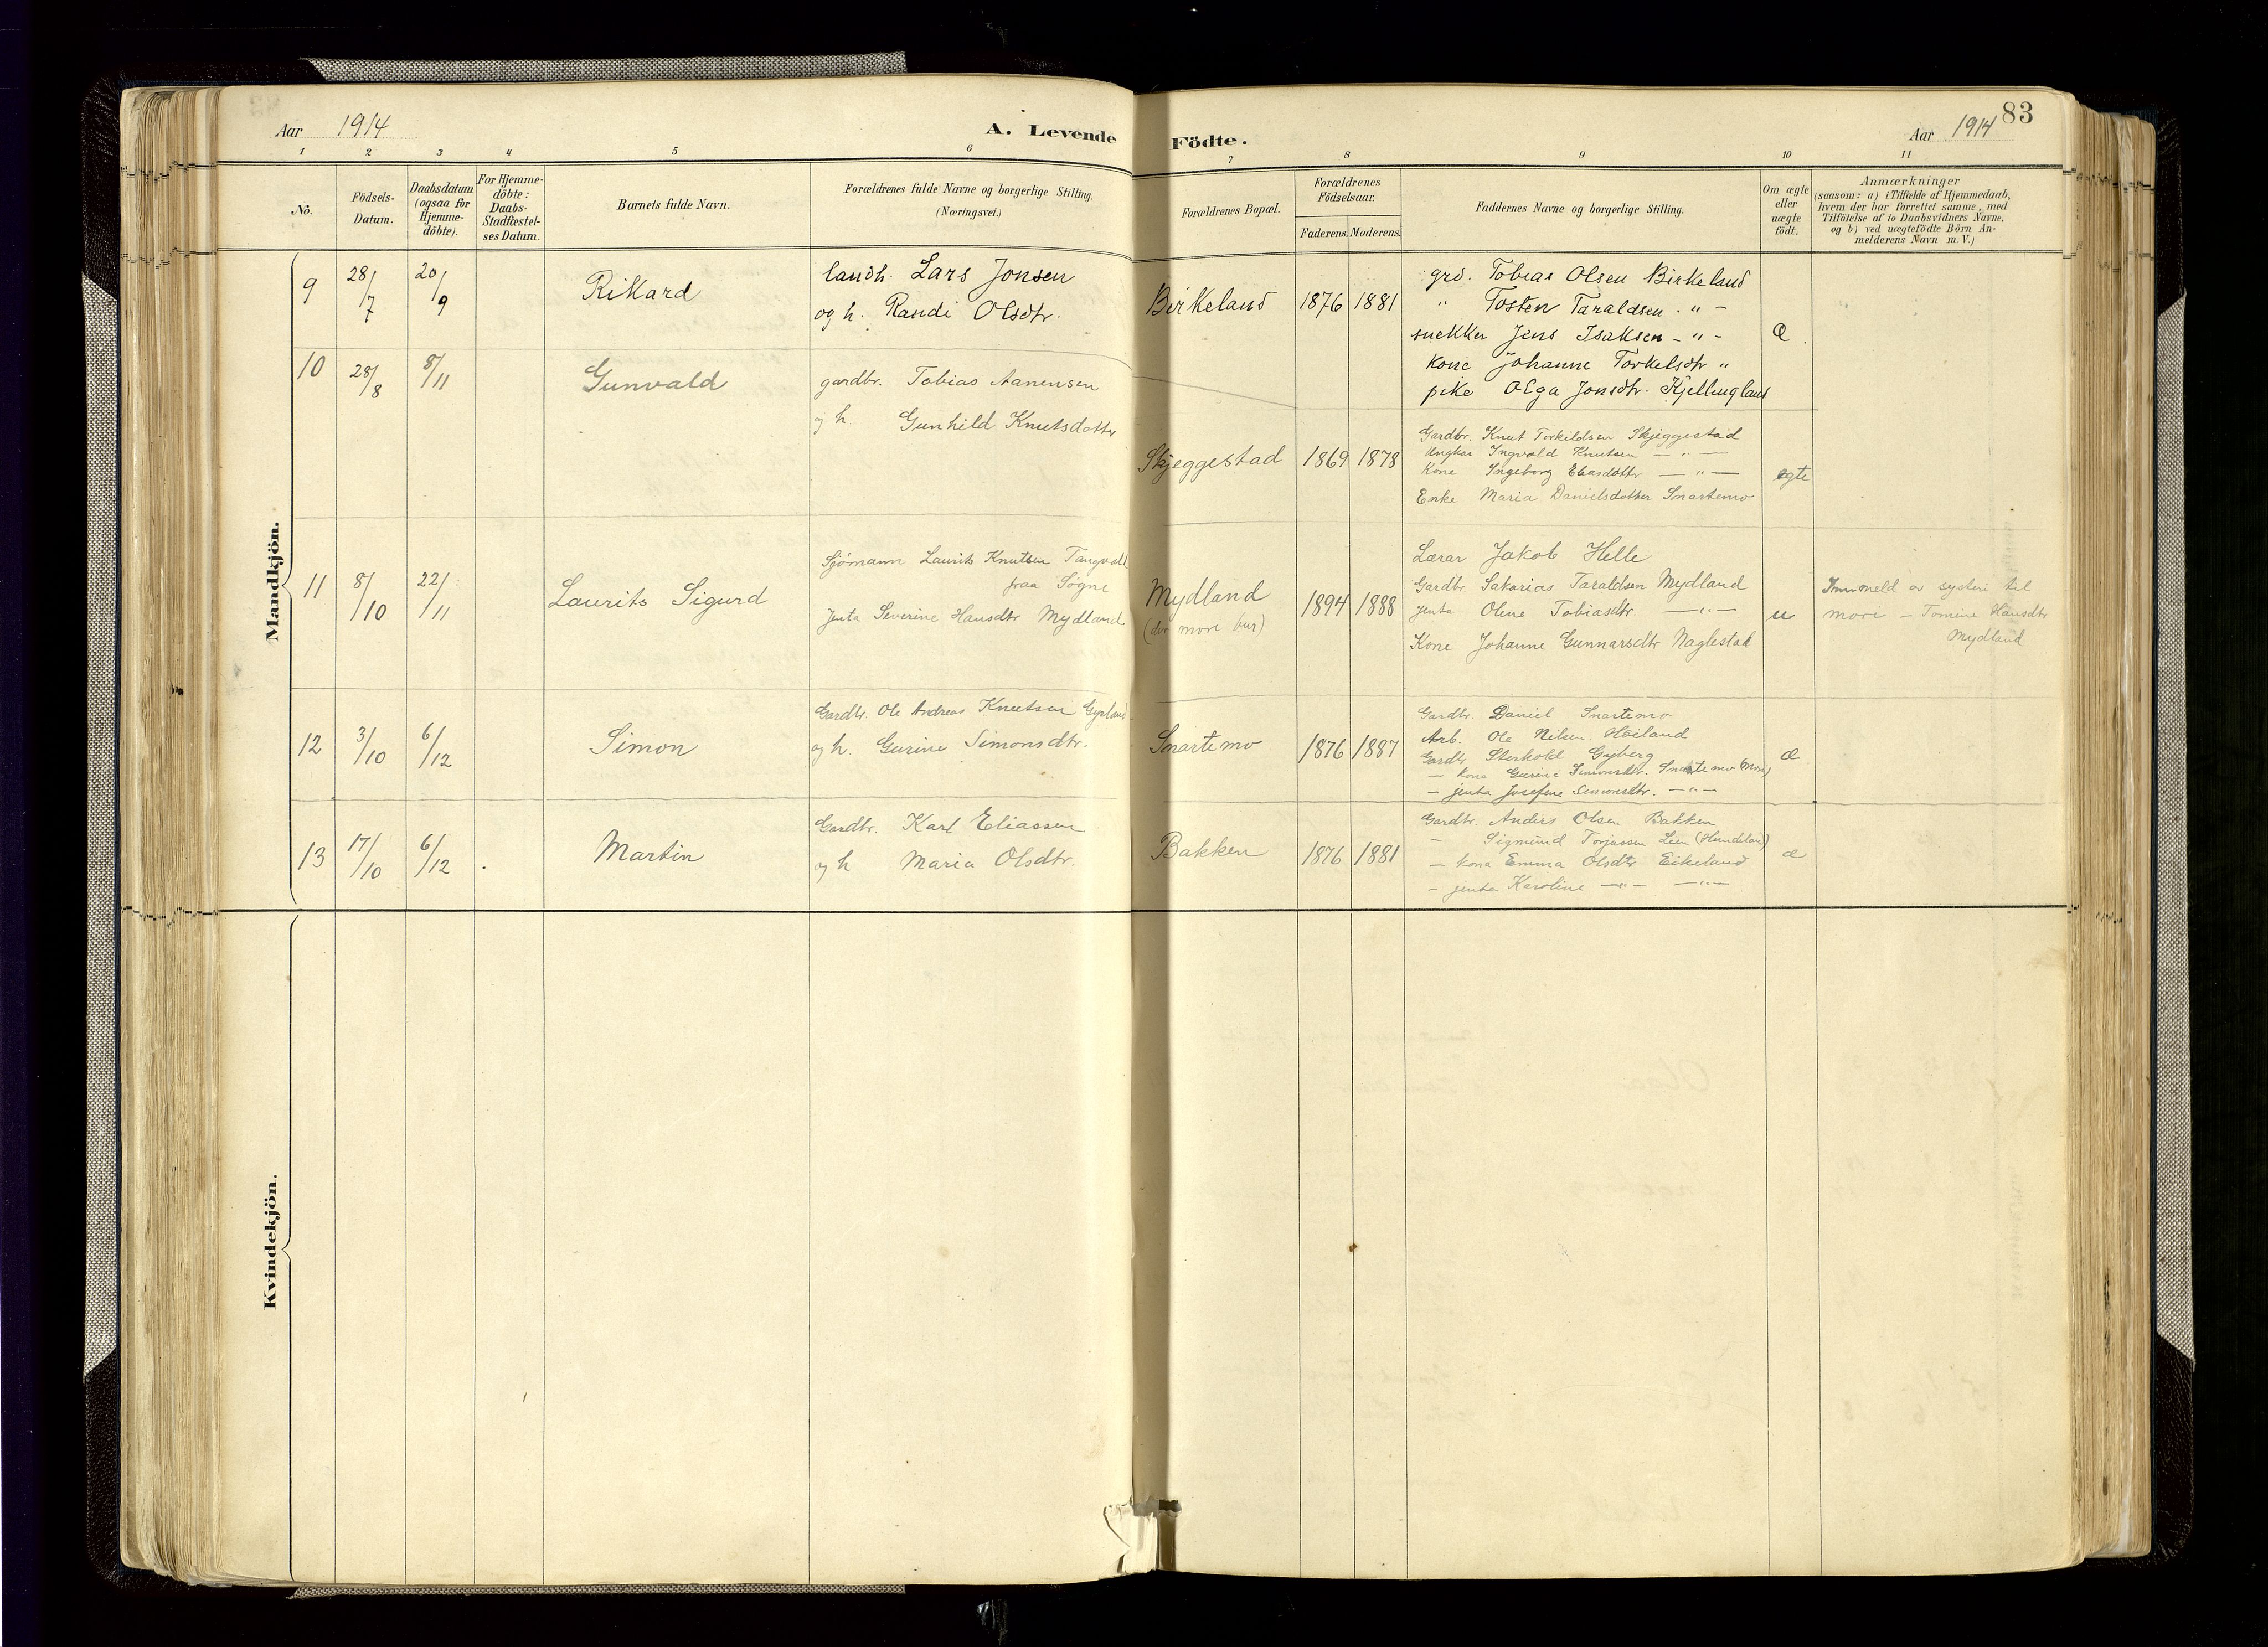 Aar 1914
A. Levende Födte.
Aar 1914
83
1 2 3 4 5 6 7 8 9 10 11
No.
Födsels-Datum.
Daabsdatum (ogsaa for Hjemme-döbte).
For Hjemme-döbte: Daabs-Stadfæstel-ses Datum.
Barnets fulde Navn.
Forældrenes fulde Navne og borgerlige Stilling.
(Næringsvei.)
Forældrenes Bopæl.
Forældrenes Födselsaar.
Faderens. Moderens.
Faddernes Navne og borgerlige Stilling.
Om ægte eller uægte födt.
Anmærkninger
(saasom: a) i Tilfælde af Hjemmedaab,
hvem der har forrettet samme, med
Tilföielse af to Daabsvidners Navne,
og b) ved uægtefödte Börn An-
melderens Navn m. V.)
Mandkjön.
9 28/7 20/9 Rikard
landh. Lars Jonsen
og h. Randi Olsdtr.
Birkeland 1876 1881
grd. Tobias Olsen Birkeland
" Tosten Taraldsen - " -
snekker Jens Isaksen - " -
kone Johanne Torkelsdtr "
pike Olga Jonsdtr. Kjellingland
Æ.
10 28/8 8/11 Gunvald
gardbr. Tobias Aanensen
og h. Gunhild Knutsdotter
Skjeggestad 1869 1878
Gardbr. Knut Torkildsen Skjeggestad
Ungkar Ingvald Knutsen — " —
Kone Ingeborg Eliasdotter — " —
Enke Maria Danielsdotter Snartemo
egte
11 8/10 22/11 Laurits Sigurd
Sjømann Laurits Knutsen Tangvall
fraa Søgne
Jenta Severine Hansdtr Mydland
Mydland
(der mori bur)
1894 1888
Lærar Jakob Helle
Gardbr Sakarias Taraldsen Mydland
Jenta Oline Tobiasdtr. — " —
Kone Johanne Gunnarsdtr Naglestad
u
Innmeld av systeri til
mori — Tomine Hansdtr
Mydland
12 3/10 6/12 Simon
Gardbr. Ole Andreas Knutsen Gysland
og h. Gurine Simonsdtr.
Snartemo 1876 1887
Gardbr. Daniel Snartemo
Arb. Ole Nilsen Høiland
Gardbr Sterkold Gyberg
— kona Gurine Simonsdtr. Snartemo (Mori)
— jenta Josefine Simonsdtr. — " —
æ
13 17/10 6/12 Martin
Gardbr. Karl Eliassen
og h Maria Olsdtr.
Bakken 1876 1881
Gardbr. Anders Olsen Bakken
— Sigmund Torjussen Lien
— kona Emma Olsdtr Eikeland
— jenta Karoline — " — — " —
æ
Kvindekjön.